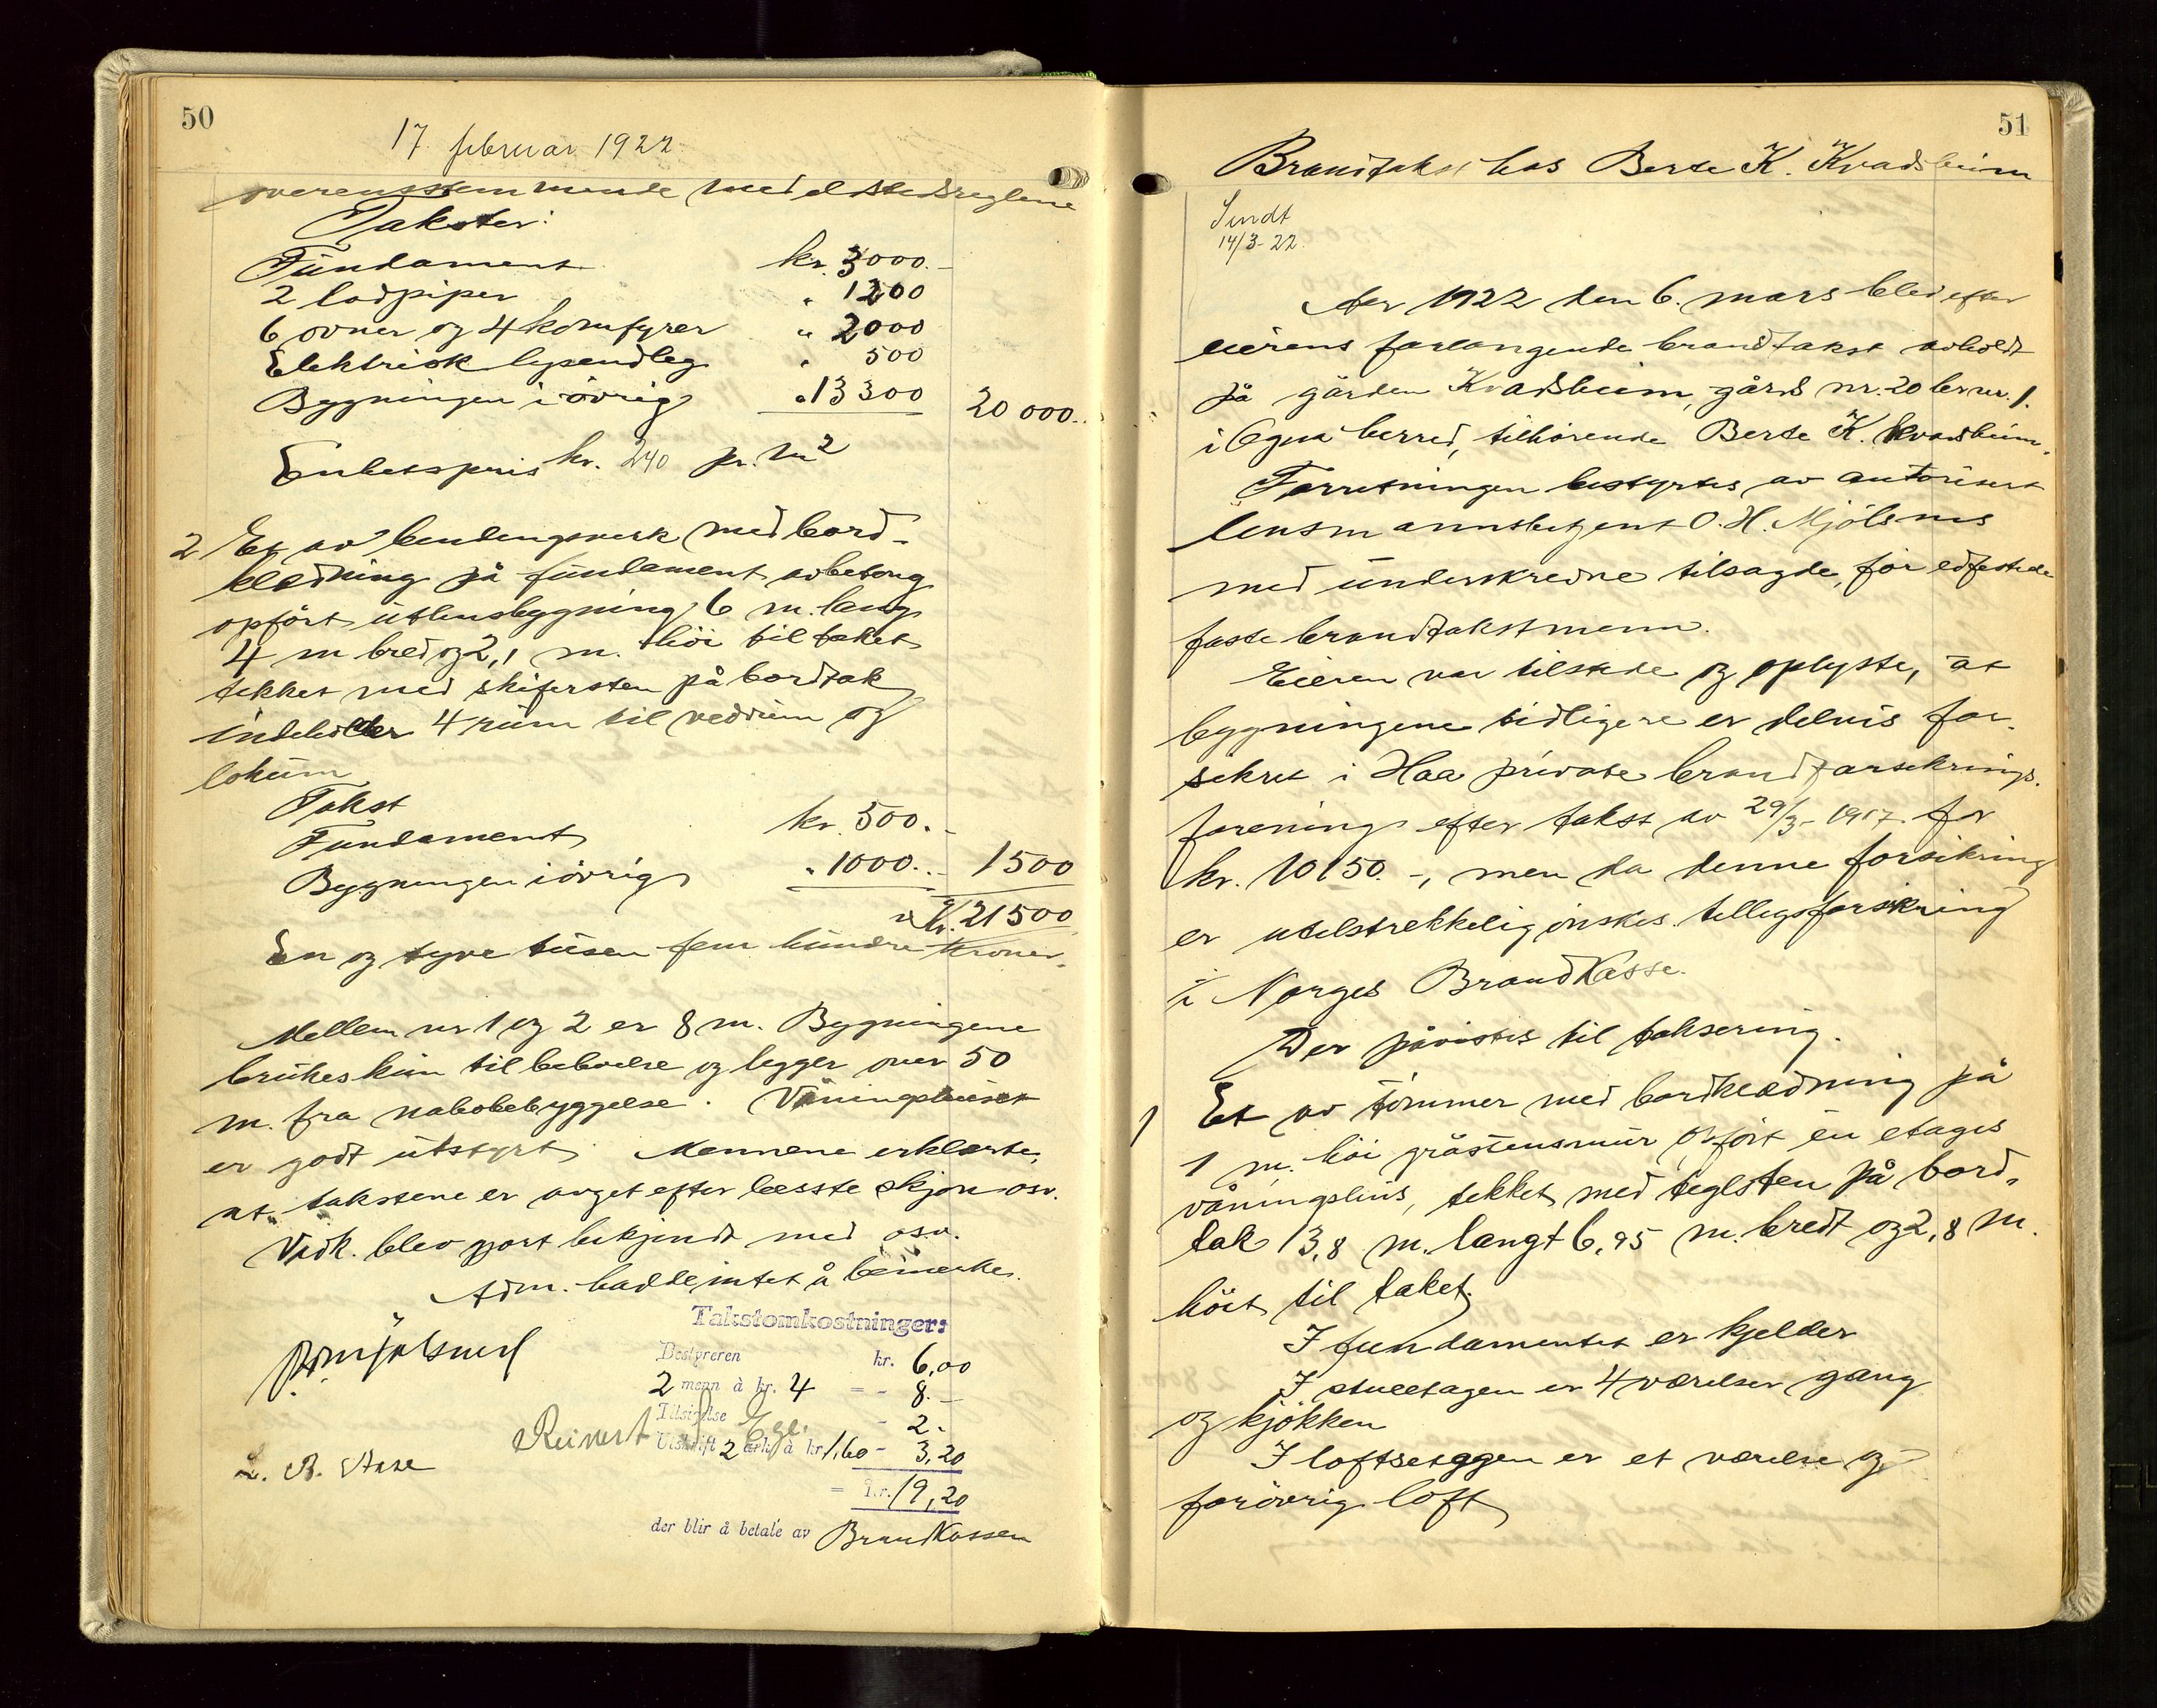 50
17. februar 1922.
overensstemmende med elsteds reglene
Takster:
Fundament kr. 3000.-
2 lodpiper " 1200
6 ovner og 4 komfyrer " 2000
Elektrisk lysendleg " 500
Bygningen i övrig " 13300 20 000.-
Enhetspris kr. 240 pr. m2
2 Et av bendingsverk med bord-
klædning på fundament av betong
opfört uthusbygning 6 m. lang
4 m bred og 2,1 m. höi til taket
tekket med skifersten på bordtak
indeholder 4 rum til vedrum og
lokum
Takst
Fundament kr. 500.-
Bygningen i övrig " 1000.- 1500
kr. 21500
En og tyve tusen fem hundre kroner.
Mellem nr 1 og 2 er 8 m. Bygningene
brukes kun til beboelse og legger over 50
m. fra nabobebyggelse. Våningshuset
er godt utstyrt. Mennene erklærte,
at takstene er avget efter beste skjön osv.
Vedk. blev gjort bekjendt med osv.
Adm. hadde intet å bemerke.
Takstomkostninger:
Bestyreren kr. 6,00
2 menn à kr. 4 = - 8.-
Tilsigelse - 2.-
Utskrift 2 ark à kr. 1,60 - 3,20
= Kr. 19,20
der blir å betale av Brandkassen
O H Mjölsnes
Reinert J. Ege.
L. B. Aase
51
Brandtakst hos Berte K. Kvadsheim
Sendt
14/3-22.
Aar 1922 den 6. mars blev efter
eierens forlangende brandtakst avholdt
på gården Kvadsheim, gårds nr. 20 br nr. 1.
i Ogna herred, tilhörende Berte K. Kvadsheim.
Forretningen bestyrtes av autorisert
lensmannsbetjent O. H. Mjölsnes
med underskrevne tilsagde, för edfestede
faste brandtakstmenn.
Eieren var tilstede og oplyste, at
bygningene tidligere er delvis for-
sikret i Haa private brandforsikrings-
forening efter takst av 29/3-1917. for
kr. 10150.-, men da denne forsikring
er utilstrekkelig önskes tillegsforsikring
i Norges Brandkasse.
Der påvistes til taksering.
1 Et av tömmer med bordklædning på
1 m. höi gråstensmur opfört en etages
våningshus, tekket med teglsten på bord-
tak 13,8 m. langt 6,95 m. bredt og 2,8 m.
höit til taket.
I fundamentet er kjelder
I stueetagen er 4 værelser gang
og kjökken
I loftsetagen er et værelse og
forövrig loft